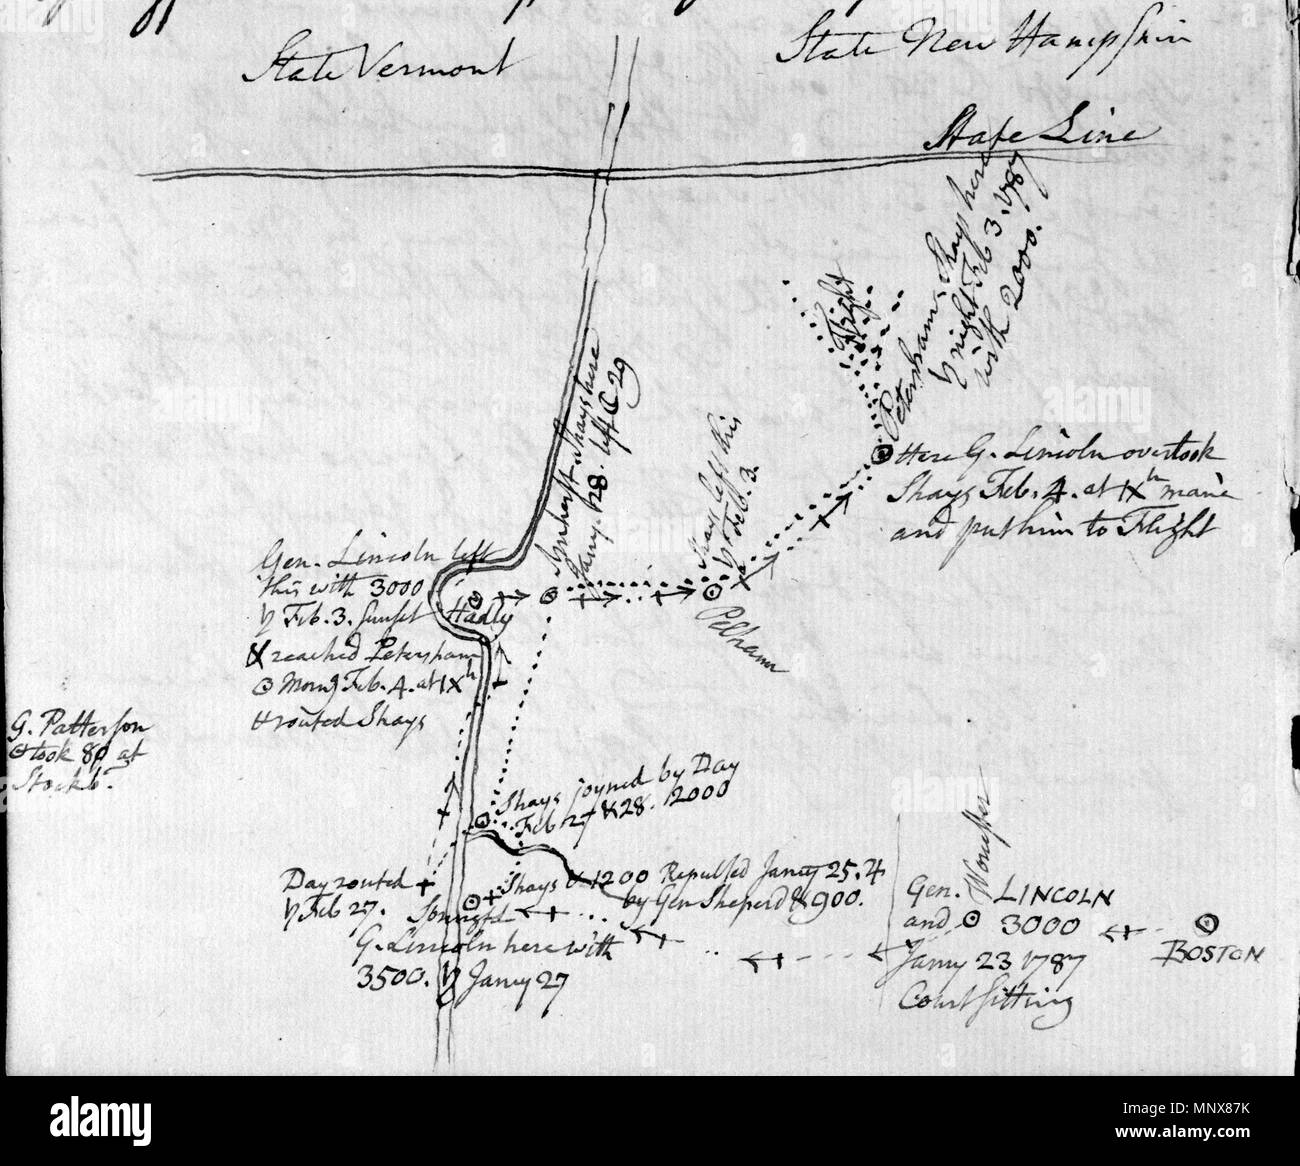 State Vermont
State New Hampshir
State Line
Petersham, Shays here
y night Feb 3. 1787
with 2000.
Flight
Amherst. Shays here
Jany. 28. left @ 29
Shays left this
y Feb. 3.
Here G. Lincoln overtook
Shays Feb. 4. at IXh
and put him to Flight
Gen. Lincoln left
this with 3000
y Feb. 3. Sunset
& reached Petersham
Morng Feb. 4. at IXh
& routed Shays
Hadly
Pelham
G. Patterson
took 80 at
Stockb.
Shays joyned by Day
Feb 27 & 28. 2000
Day routed
y Feb 27.
Shays & 1200 Repulsed Jany 25. 4
by Gen Sheperd & 900.
Springfd
G. Lincoln here with
3500. y Jany 27
Worcester
Gen. LINCOLN
and 3000
Jany 23 1787
Court sitting
BOSTON
alamy
Image ID: MNX87K
www.alamy.com